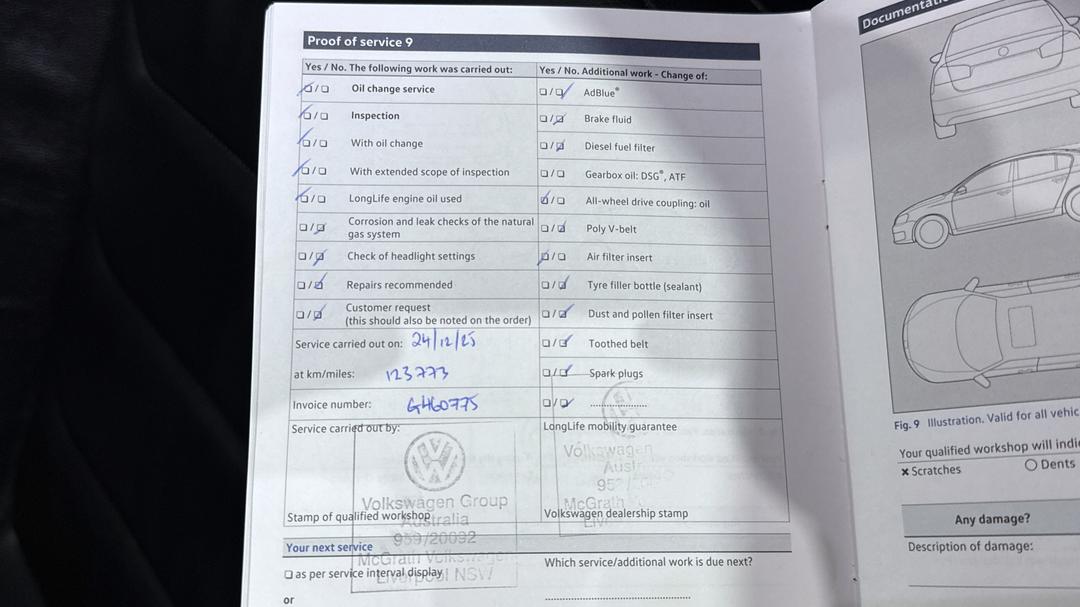 Proof of service 9
Yes / No. The following work was carried out:
Oil change service
Inspection
With oil change
With extended scope of inspection
LongLife engine oil used
Corrosion and leak checks of the natural
gas system
Check of headlight settings
Repairs recommended
Customer request
(this should also be noted on the order)
Service carried out on: 24/12/25
at km/miles: 123773
Invoice number: G460775
Service carried out by:
Volkswagen Group
Australia
959/20092
McGrath Volkswagen
Liverpool NSW
Stamp of qualified workshop
Yes / No. Additional work - Change of:
AdBlue®
Brake fluid
Diesel fuel filter
Gearbox oil: DSG®, ATF
All-wheel drive coupling: oil
Poly V-belt
Air filter insert
Tyre filler bottle (sealant)
Dust and pollen filter insert
Toothed belt
Spark plugs
LongLife mobility guarantee
Volkswagen
McGrath
Volkswagen dealership stamp
Your next service
as per service interval display
or
Which service/additional work is due next?
Fig. 9 Illustration. Valid for all
Your qualified workshop will
× Scratches
Dents
Any damage?
Description of damage: